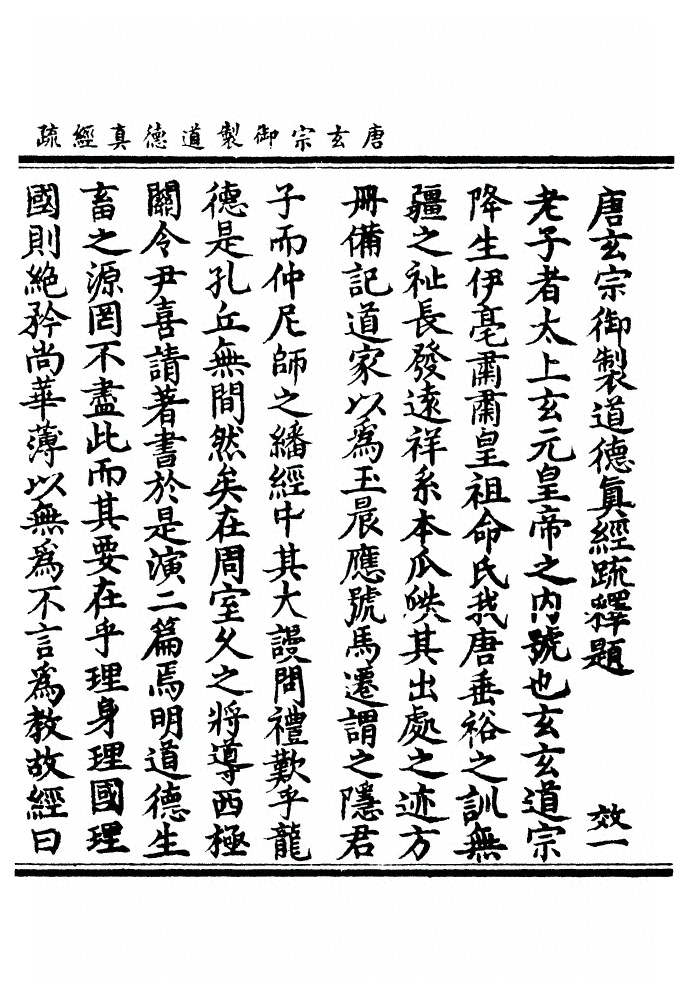 唐玄宗御製道德真經疏
唐玄宗御製道德眞經疏釋題　效一
老子者太上玄元皇帝之內號也玄玄道宗
降生伊亳肅肅皇祖命氏我唐垂裕之訓無
疆之祉長發遠祥系本瓜瓞其出處之迹方
冊備記道家以爲玉晨應號馬遷謂之隱君
子而仲尼師之繙經中其大謾問禮歎乎龍
德是孔丘無間然矣在周室久之將導西極
關令尹喜請著書於是演二篇焉明道德生
畜之源罔不盡此而其要在乎理身理國理
國則絶矜尚華薄以無爲不言爲教故經曰